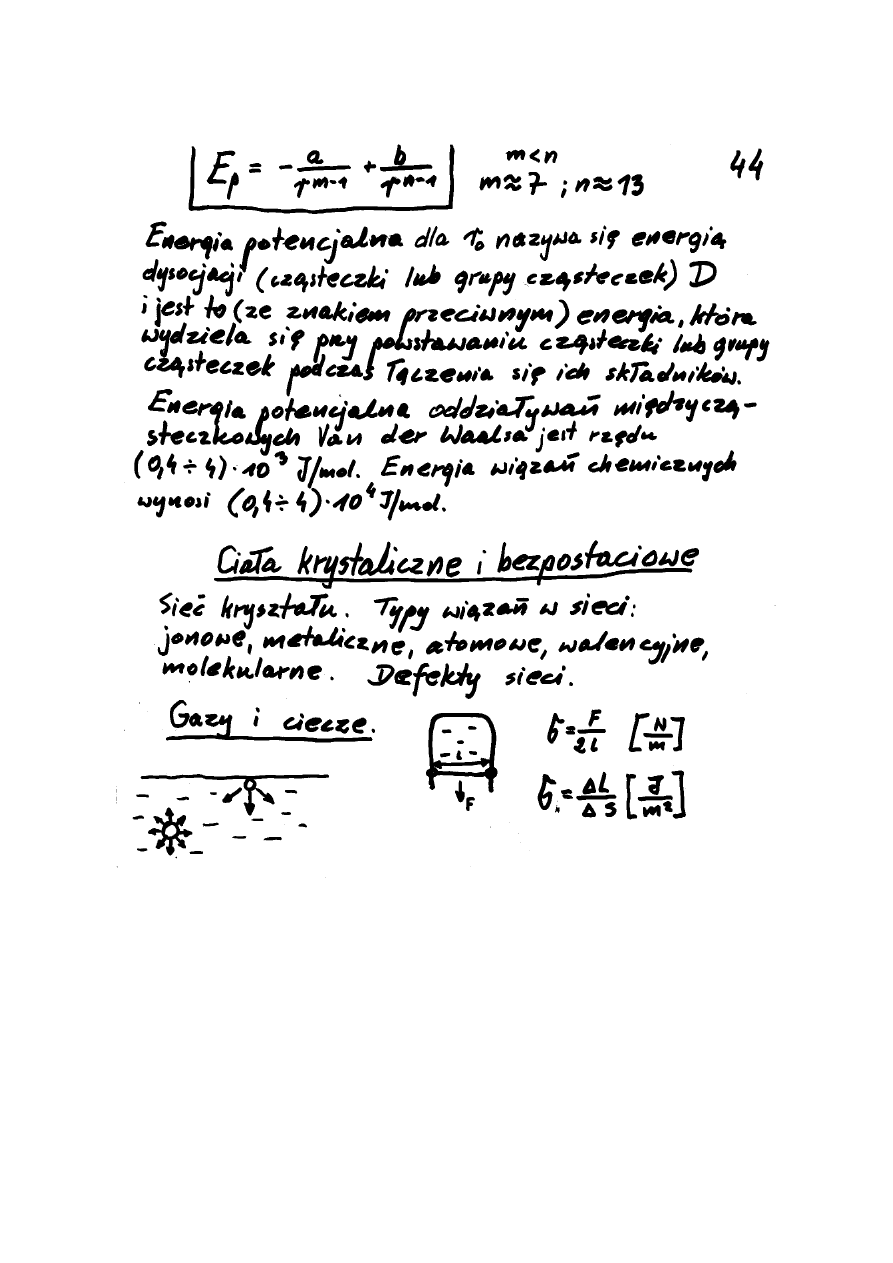 E_p = - a/r^(m-1) + b/r^(n-1)    m<n    44
m≈7 ; n≈13
Energia potencjalna dla r₀ nazywa się energią
dysocjacji (cząsteczki lub grupy cząsteczek) D
i jest to (ze znakiem przeciwnym) energia, która
wydziela się przy powstawaniu cząsteczki lub grupy
cząsteczek podczas łączenia się ich składników.
Energia potencjalna oddziaływań międzyczą-
steczkowych Van der Waalsa jest rzędu
(0,4 ÷ 4)·10³ J/mol. Energia wiązań chemicznych
wynosi (0,4 ÷ 4)·10⁴ J/mol.
Ciała krystaliczne i bezpostaciowe
Sieć kryształu. Typy wiązań w sieci:
jonowe, metaliczne, atomowe, walencyjne,
molekularne. Defekty sieci.
Gazy i ciecze.
l
F
σ = F/2l [N/m]
σ = ΔL/ΔS [J/m²]